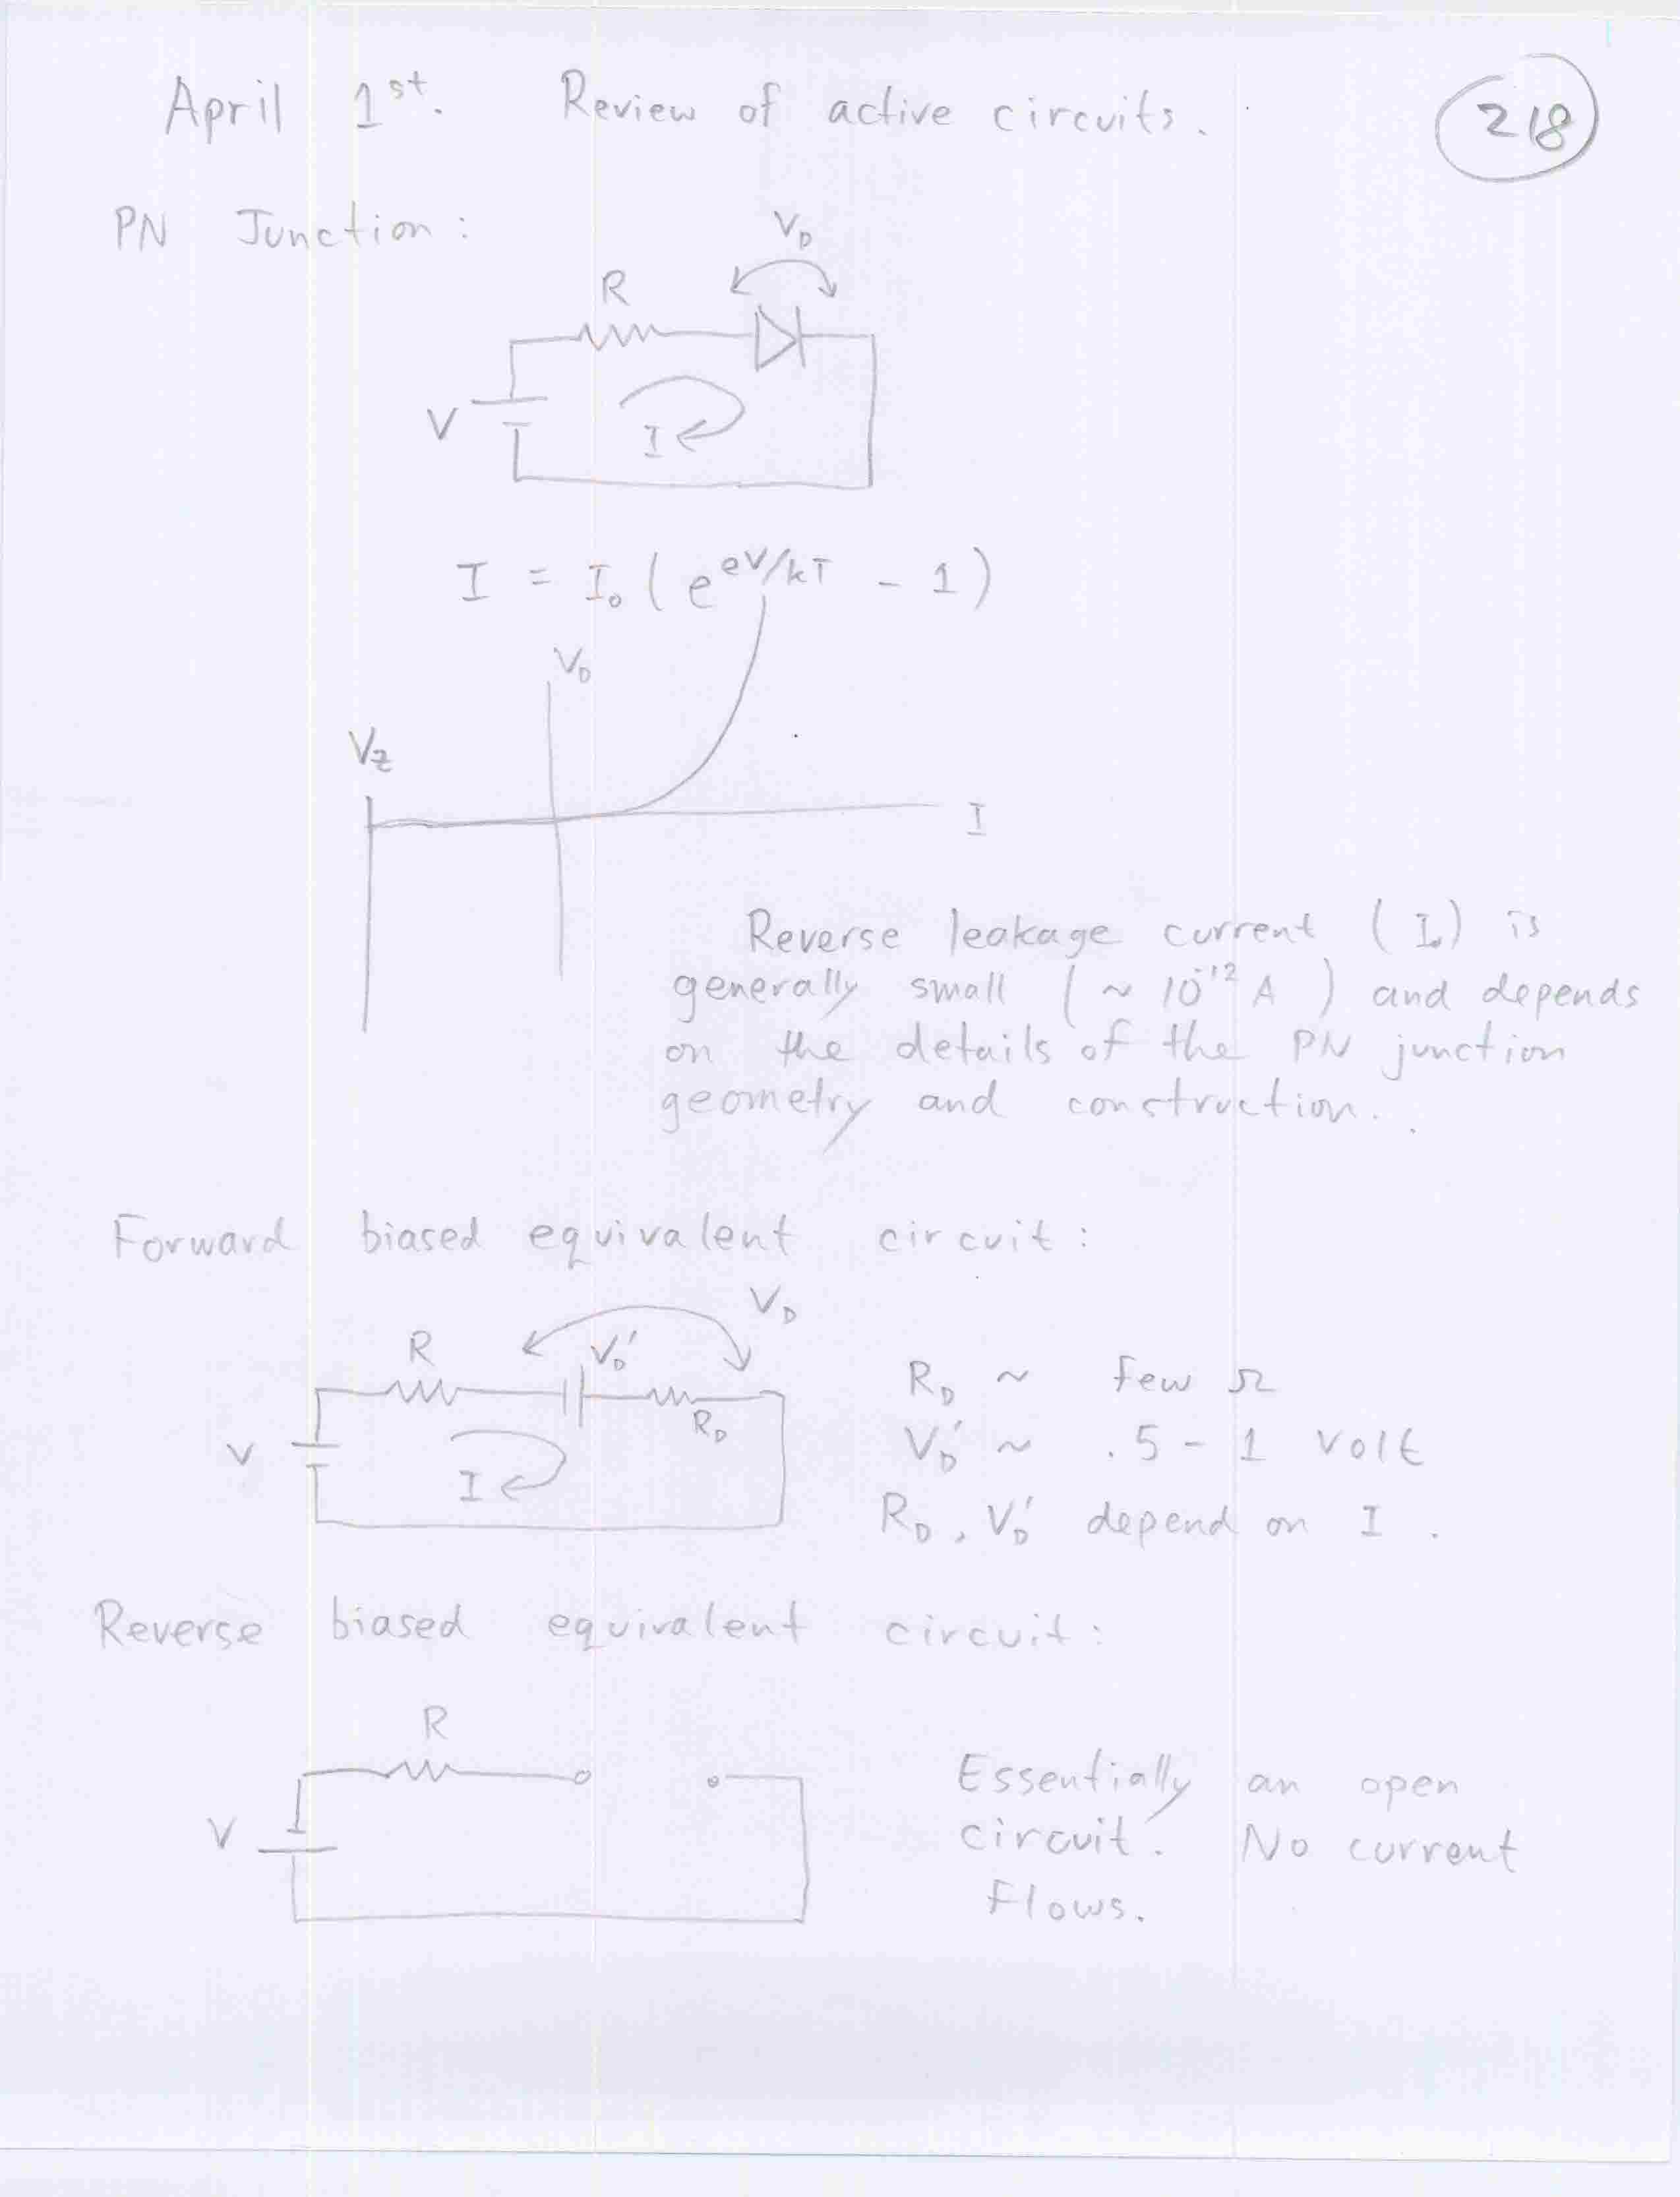 April 1st. Review of active circuits. 218
PN Junction:
V_D
R
V
I
I = I₀ ( e^{eV/kT} - 1 )
V_D
V_Z
I
Reverse leakage current ( I₀ ) is
generally small ( ~ 10⁻¹² A ) and depends
on the details of the PN junction
geometry and construction.
Forward biased equivalent circuit:
V_D
R V_D'
R_D
V
I
R_D ~ few Ω
V_D' ~ .5 - 1 volt
R_D, V_D' depend on I.
Reverse biased equivalent circuit:
R
V
Essentially an open
circuit. No current
flows.